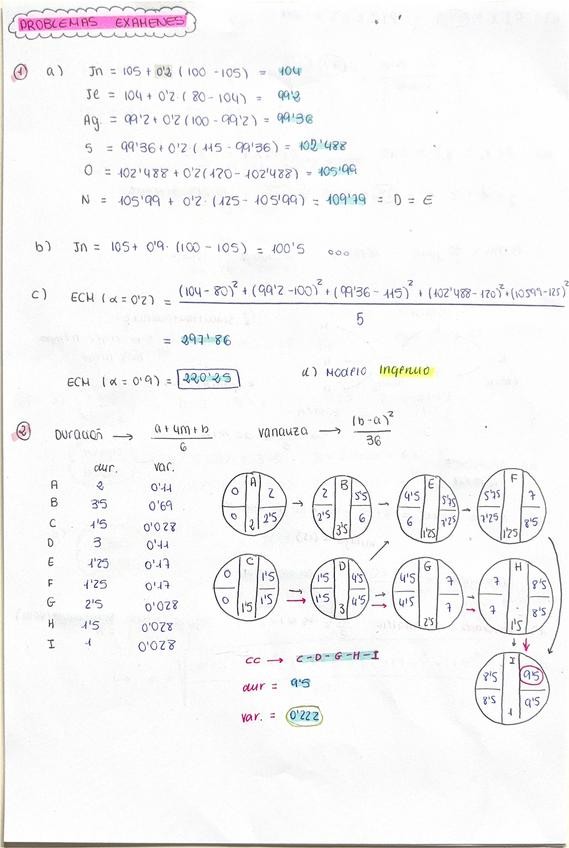 PROBLEMAS EXAMENES
1 a) Jn = 105 + 0'2 (100 - 105) = 104
Jl = 104 + 0'2 · (80 - 104) = 99'2
Ag = 99'2 + 0'2 (100 - 99'2) = 99'36
S = 99'36 + 0'2 (115 - 99'36) = 102'488
O = 102'488 + 0'2 (120 - 102'488) = 105'99
N = 105'99 + 0'2 · (125 - 105'99) = 109'79 = D = E
b) Jn = 105 + 0'9 · (100 - 105) = 100'5 ...
c) ECM (α = 0'2) = (104 - 80)² + (99'2 - 100)² + (99'36 - 115)² + (102'488 - 120)² + (105'99 - 125)²
5
= 297'86
ECM (α = 0'9) = 220'25 d) MODELO INGENUO
2 Duración → a + 4m + b / 6 varianza → (b - a)² / 36
dur. var.
A 2 0'11
B 3'5 0'69
C 1'5 0'028
D 3 0'11
E 1'25 0'17
F 1'25 0'17
G 2'5 0'028
H 1'5 0'028
I 1 0'028
0 A 2
0 2 2'5
2 B 5'5
2'5 3'5 6
4'5 E 5'75
6 1'25 7'25
5'75 F 7
7'25 1'25 8'5
0 C 1'5
0 1'5 1'5
1'5 D 4'5
1'5 3 4'5
4'5 G 7
4'5 2'5 7
7 H 8'5
7 1'5 8'5
8'5 I 9'5
8'5 1 9'5
CC → C - D - G - H - I
dur = 9'5
var. = 0'222